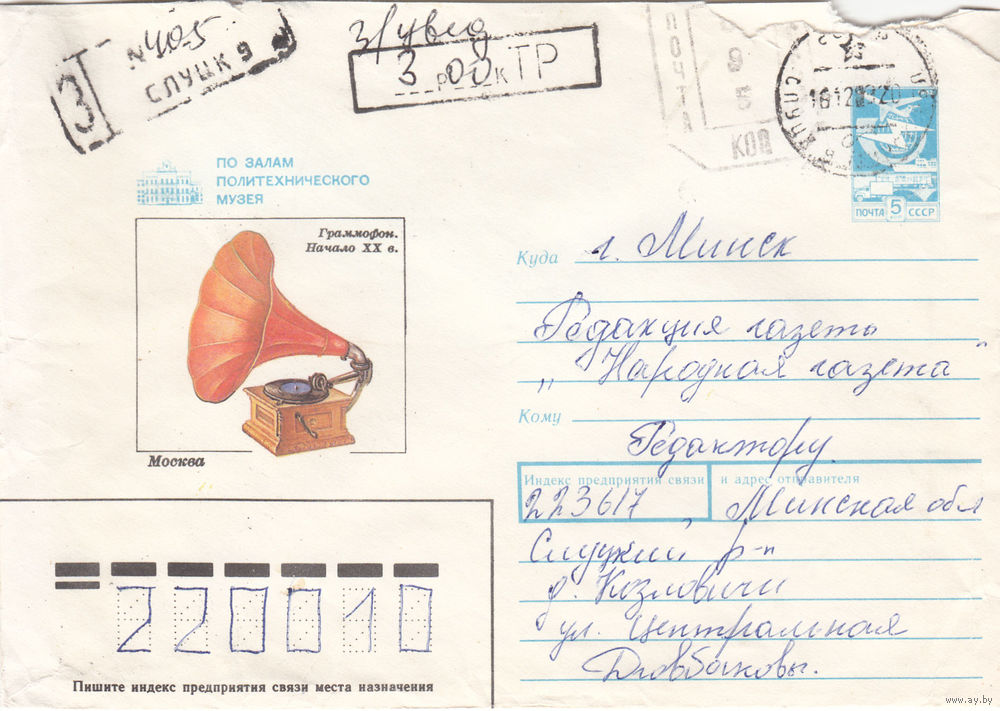 З
№ 405
СЛУЦК 9
з/увед
3 р 00 к ТР
ПОЧТА
КОД
СЛУЦК
ПОЧТА 5 СССР
ПО ЗАЛАМ
ПОЛИТЕХНИЧЕСКОГО
МУЗЕЯ
Граммофон.
Начало XX в.
Москва
Куда г. Минск
Редакция газеты
„Народная газета“
Кому
Редактору
Индекс предприятия связи и адрес отправителя
223617 Минская обл
Слуцкий р-н
д. Козловичи
ул Центральная
220010
Пишите индекс предприятия связи места назначения
www.ay.by